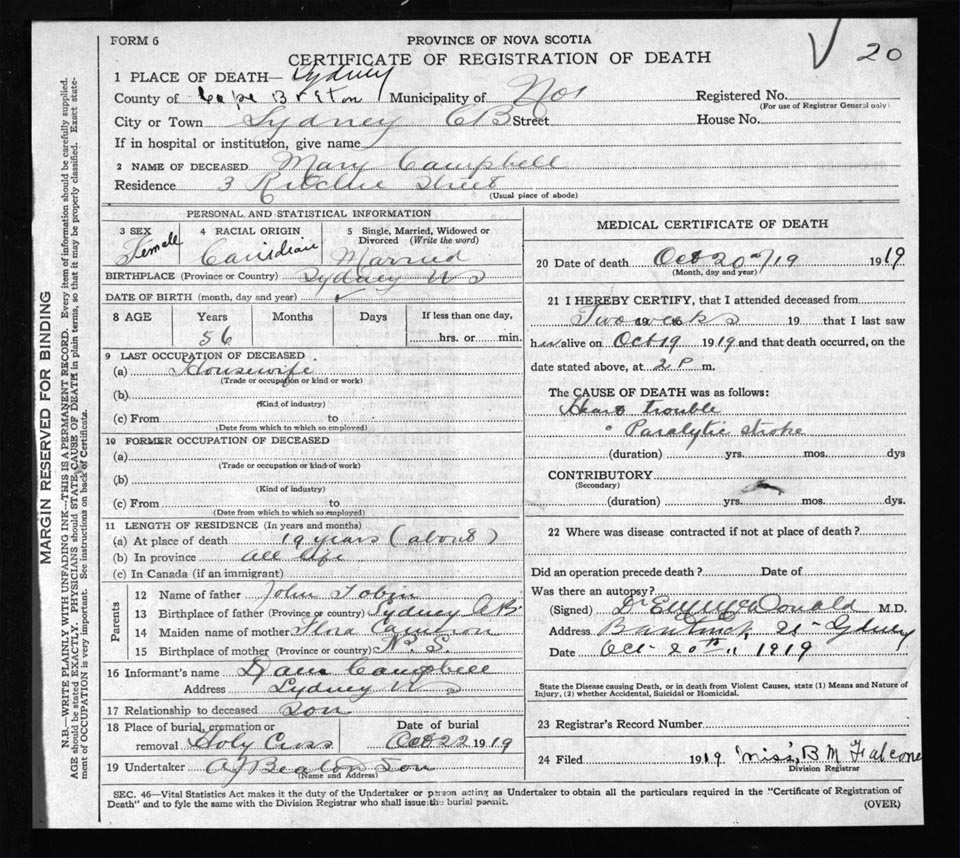 FORM 6
PROVINCE OF NOVA SCOTIA
CERTIFICATE OF REGISTRATION OF DEATH
20
1 PLACE OF DEATH— Sydney
County of Cape Breton Municipality of Registered No.
(For use of Registrar General only)
City or Town Sydney CB Street House No.
If in hospital or institution, give name
2 NAME OF DECEASED Mary Campbell
Residence 3 Ritchie Street
(Usual place of abode)
PERSONAL AND STATISTICAL INFORMATION
3 SEX 4 RACIAL ORIGIN 5 Single, Married, Widowed or Divorced (Write the word)
Female Canidian Married
BIRTHPLACE (Province or Country) Sydney NS
DATE OF BIRTH (month, day and year)
8 AGE Years Months Days If less than one day,
56 hrs. or min.
9 LAST OCCUPATION OF DECEASED
(a) Housewife
(Trade or occupation or kind or work)
(b)
(Kind of industry)
(c) From to
(Date from which to which so employed)
10 FORMER OCCUPATION OF DECEASED
(a)
(Trade or occupation or kind of work)
(b)
(Kind of industry)
(c) From to
(Date from which to which so employed)
11 LENGTH OF RESIDENCE (In years and months)
(a) At place of death 19 years (about)
(b) In province all life
(c) In Canada (if an immigrant)
Parents
12 Name of father John Tobin
13 Birthplace of father (Province or country) Sydney CB
14 Maiden name of mother Flora Cameron
15 Birthplace of mother (Province or country) N. S.
16 Informant's name Campbell
Address Sydney NS
17 Relationship to deceased Son
18 Place of burial, cremation or removal Holy Cross
Date of burial Oct 22 1919
19 Undertaker AJ Beaton Son
(Name and Address)
MEDICAL CERTIFICATE OF DEATH
20 Date of death Oct 20th/19 1919
(Month, day and year)
21 I HEREBY CERTIFY, that I attended deceased from
Two weeks 19 that I last saw
her alive on Oct 19 1919 and that death occurred, on the
date stated above, at 2 P m.
The CAUSE OF DEATH was as follows:
Heart trouble
Paralytic stroke
(duration) yrs. mos. dys
CONTRIBUTORY
(Secondary)
(duration) yrs. mos. dys.
22 Where was disease contracted if not at place of death?
Did an operation precede death? Date of
Was there an autopsy?
(Signed) Dr McDonald M.D.
Address Sydney
Date Oct 20th 1919
State the Disease causing Death, or in death from Violent Causes, state (1) Means and Nature of
Injury, (2) whether Accidental, Suicidal or Homicidal.
23 Registrar's Record Number
24 Filed 1919 'Miss', B M Falconer
Division Registrar
SEC. 46—Vital Statistics Act makes it the duty of the Undertaker or person acting as Undertaker to obtain all the particulars required in the "Certificate of Registration of
Death" and to fyle the same with the Division Registrar who shall issue the burial permit.
(OVER)
MARGIN RESERVED FOR BINDING
N.B.—WRITE PLAINLY WITH UNFADING INK—THIS IS A PERMANENT RECORD. Every item of information should be carefully supplied.
AGE should be stated EXACTLY. PHYSICIANS should STATE CAUSE OF DEATH in plain terms, so that it may be properly classified. Exact state-
ment of OCCUPATION is very important. See instructions on back of Certificate.